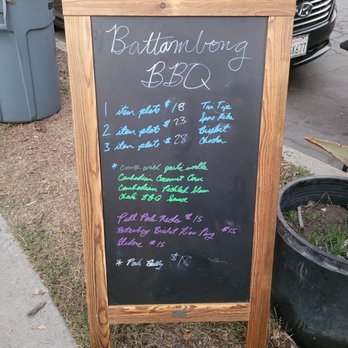 Battambong
BBQ
1 item plate $18 Tri Tip
2 item plate $23 Spare Ribs
3 item plate $28 Brisket
Chicken
* comes with garlic noodles
Cambodian Coconut Corn
Cambodian Pickled Slaw
BBQ Sauce
Pull Pork Nachos $15
Battambong Brisket $15
Sliders $15
* Pork Belly $18
K677